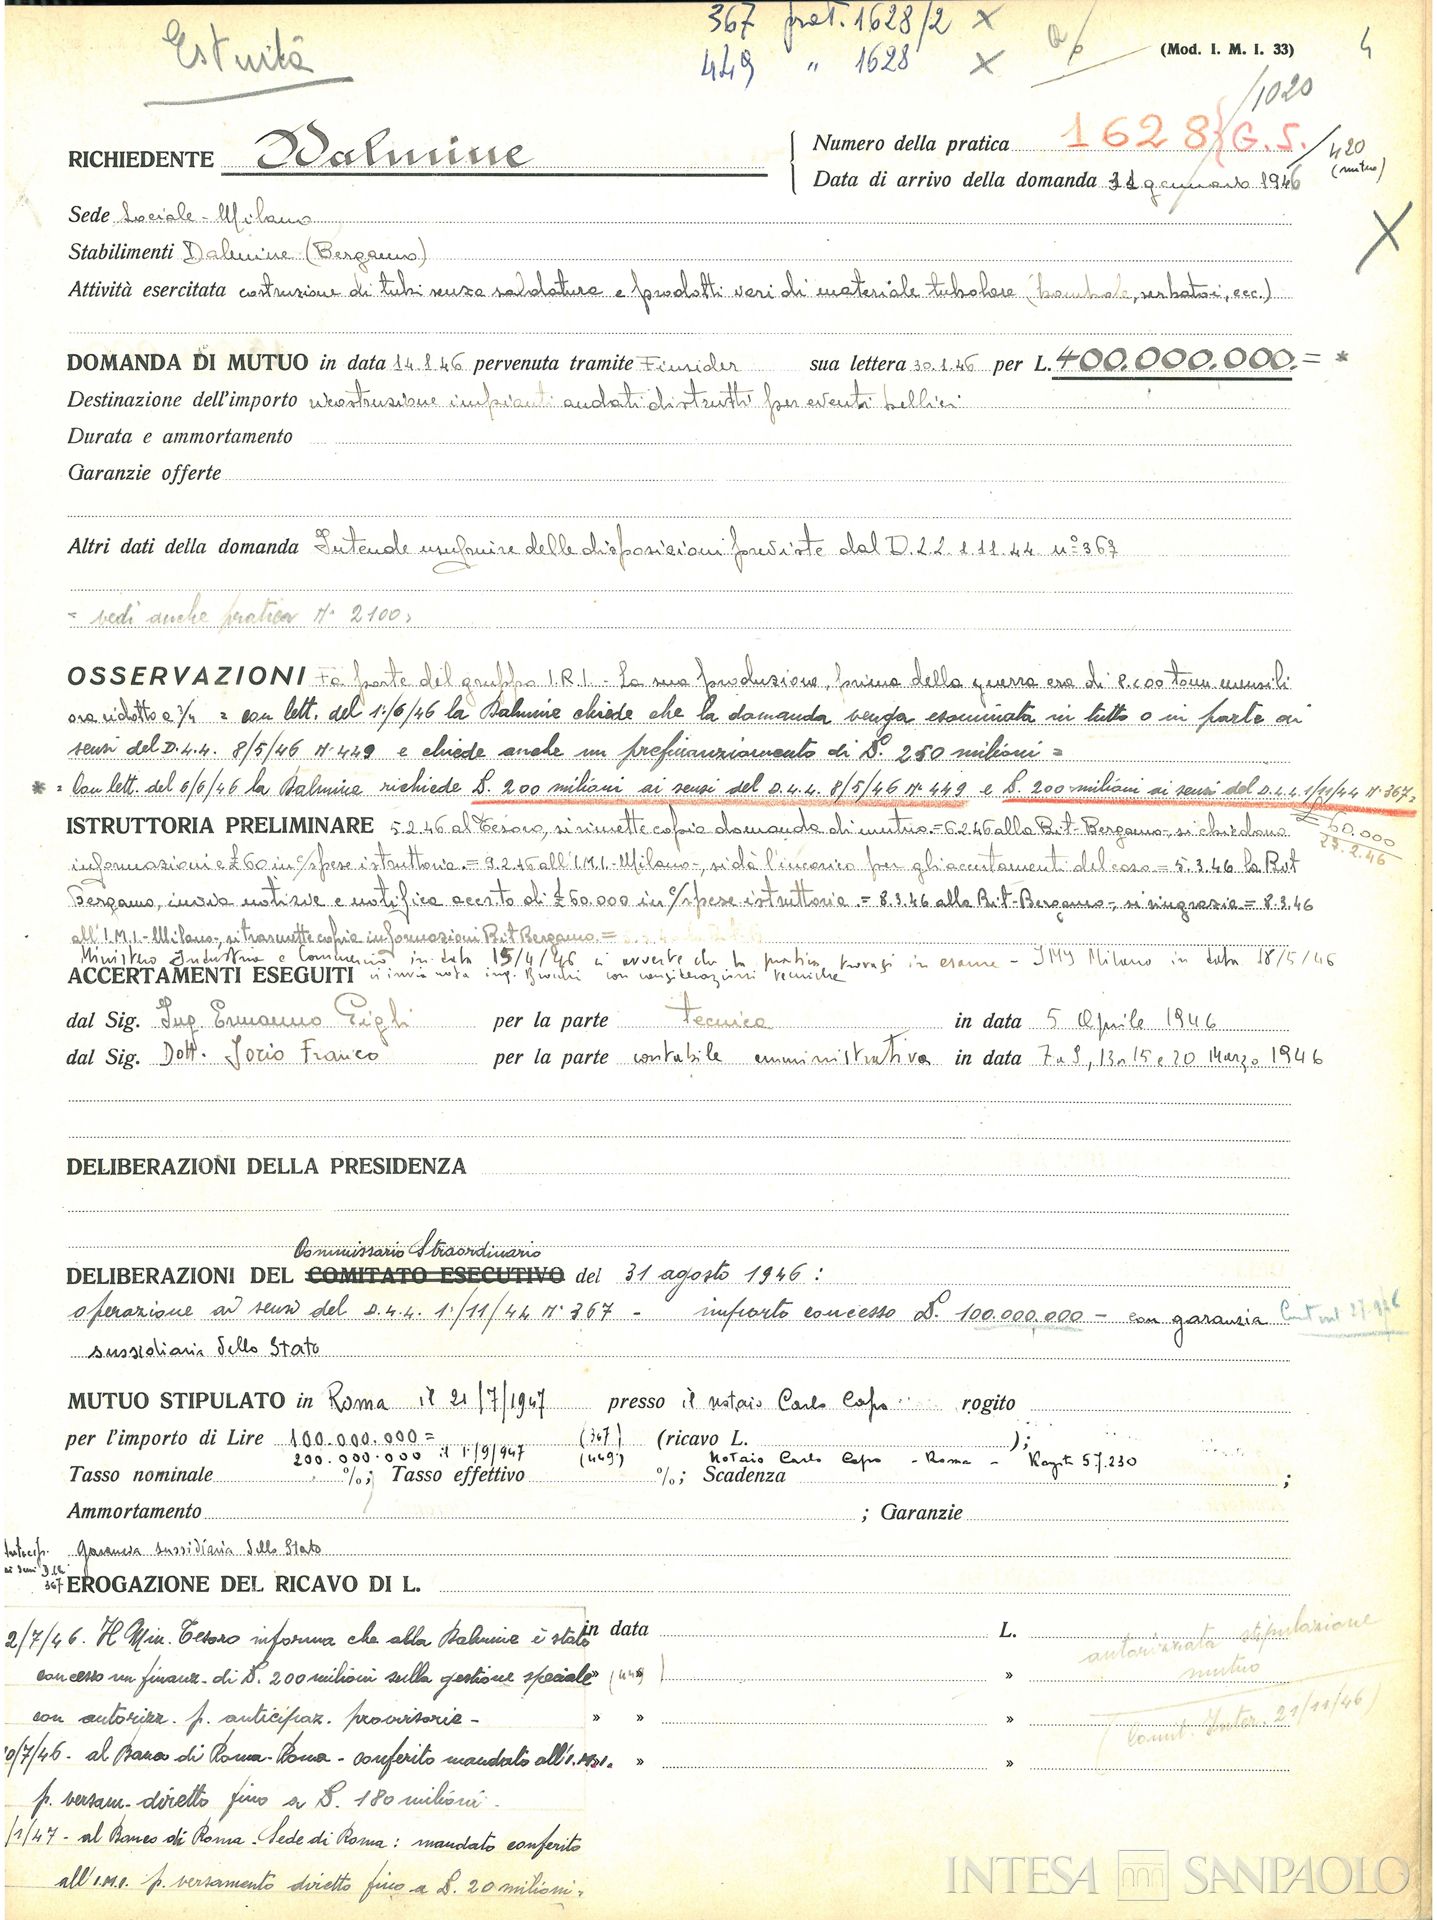 367 prot. 1628/2 X
449 " 1628 X
(Mod. I. M. I. 33)
4
Estinta
/1020
RICHIEDENTE Dalmine
Numero della pratica 1628 G.S. /420 (mutuo)
Data di arrivo della domanda 31 gennaio 1946
X
Sede Sociale - Milano
Stabilimenti Dalmine (Bergamo)
Attività esercitata costruzione di tubi senza saldatura e prodotti vari di materiale tubolare (bombole, serbatoi, ecc.)
DOMANDA DI MUTUO in data 14.8.46 pervenuta tramite Finsider sua lettera 30.1.46 per L. 400.000.000.= *
Destinazione dell'importo ricostruzione impianti andati distrutti per eventi bellici
Durata e ammortamento
Garanzie offerte
Altri dati della domanda Intende usufruire delle disposizioni previste dal D.L.L. 1.11.44 n° 367
= vedi anche pratica N. 2100.
OSSERVAZIONI Fa parte del gruppo I.R.I. - La sua produzione, prima della guerra era di tonn. mensili
ora ridotto a 3/4 = con lett. del 1°/6/46 la Dalmine chiede che la domanda venga esaminata in tutto o in parte ai
sensi del D.L.L. 8/5/46 N° 449 e chiede anche un prefinanziamento di L. 250 milioni =
* = Con lett. del 6/6/46 la Dalmine richiede L. 200 milioni ai sensi del D.L.L. 8/5/46 N° 449 e L. 200 milioni ai sensi del D.L.L. 1/11/44 N° 367 =
ISTRUTTORIA PRELIMINARE 5.2.46 al Tesoro, si rimette copia domanda di mutuo = 6.2.46 alla Bit-Bergamo, si chiedono
60.000
23.2.46
informazioni e £ 60 in c/spese istruttoria = 9.2.46 all'I.M.I.-Milano-, si dà l'incarico per gli accertamenti del caso = 5.3.46 la Bit
Bergamo, invia notizie e notifica accr.to di £ 60.000 in c/spese istruttoria = 8.3.46 alla Bit-Bergamo-, si ringrazia = 8.3.46
all'I.M.I.-Milano-, si trasmette copia informazioni Bit Bergamo =
Ministero Industria e Commercio in data 15/4/46 ci avverte che la pratica trovasi in esame - IMI Milano in data 18/5/46
ACCERTAMENTI ESEGUITI ci invia nota ing. con considerazioni tecniche
dal Sig. Ing. Ermanno Gigli per la parte tecnica in data 5 Aprile 1946
dal Sig. Dott. Iorio Franco per la parte contabile amministrativa in data 7 a 9, 13 a 15 e 20 Marzo 1946
DELIBERAZIONI DELLA PRESIDENZA
Commissario Straordinario
DELIBERAZIONI DEL COMITATO ESECUTIVO del 31 agosto 1946 :
operazione ai sensi del D.L.L. 1°/11/44 N° 367 - importo concesso L. 100.000.000 - con garanzia
sussidiaria dello Stato
MUTUO STIPULATO in Roma il 21/7/1947 presso il notaio Carlo Capo rogito
per l'importo di Lire 100.000.000 = (367) (ricavo L. );
200.000.000 il 1°/9/947 (449) Notaio Carlo Capo - Roma - Rogito 57.230
Tasso nominale %; Tasso effettivo %; Scadenza ;
Ammortamento ; Garanzie
garanzia sussidiaria dello Stato
367 EROGAZIONE DEL RICAVO DI L.
2/7/46. Il Min. Tesoro informa che alla Dalmine è stato
in data L.
concesso un finanz. di L. 200 milioni sulla gestione speciale (449)
autorizzata stipulazione
mutuo
con autorizz. p. anticipaz. provvisorie -
(Comit. Inter. 21/11/46)
0/7/46 - al Banco di Roma - Roma - conferito mandato all'I.M.I.
p. versam. diretto fino a L. 180 milioni.
/1/47 - al Banco di Roma - Sede di Roma : mandato conferito
all'I.M.I. p. versamento diretto fino a L. 20 milioni.
INTESA SANPAOLO